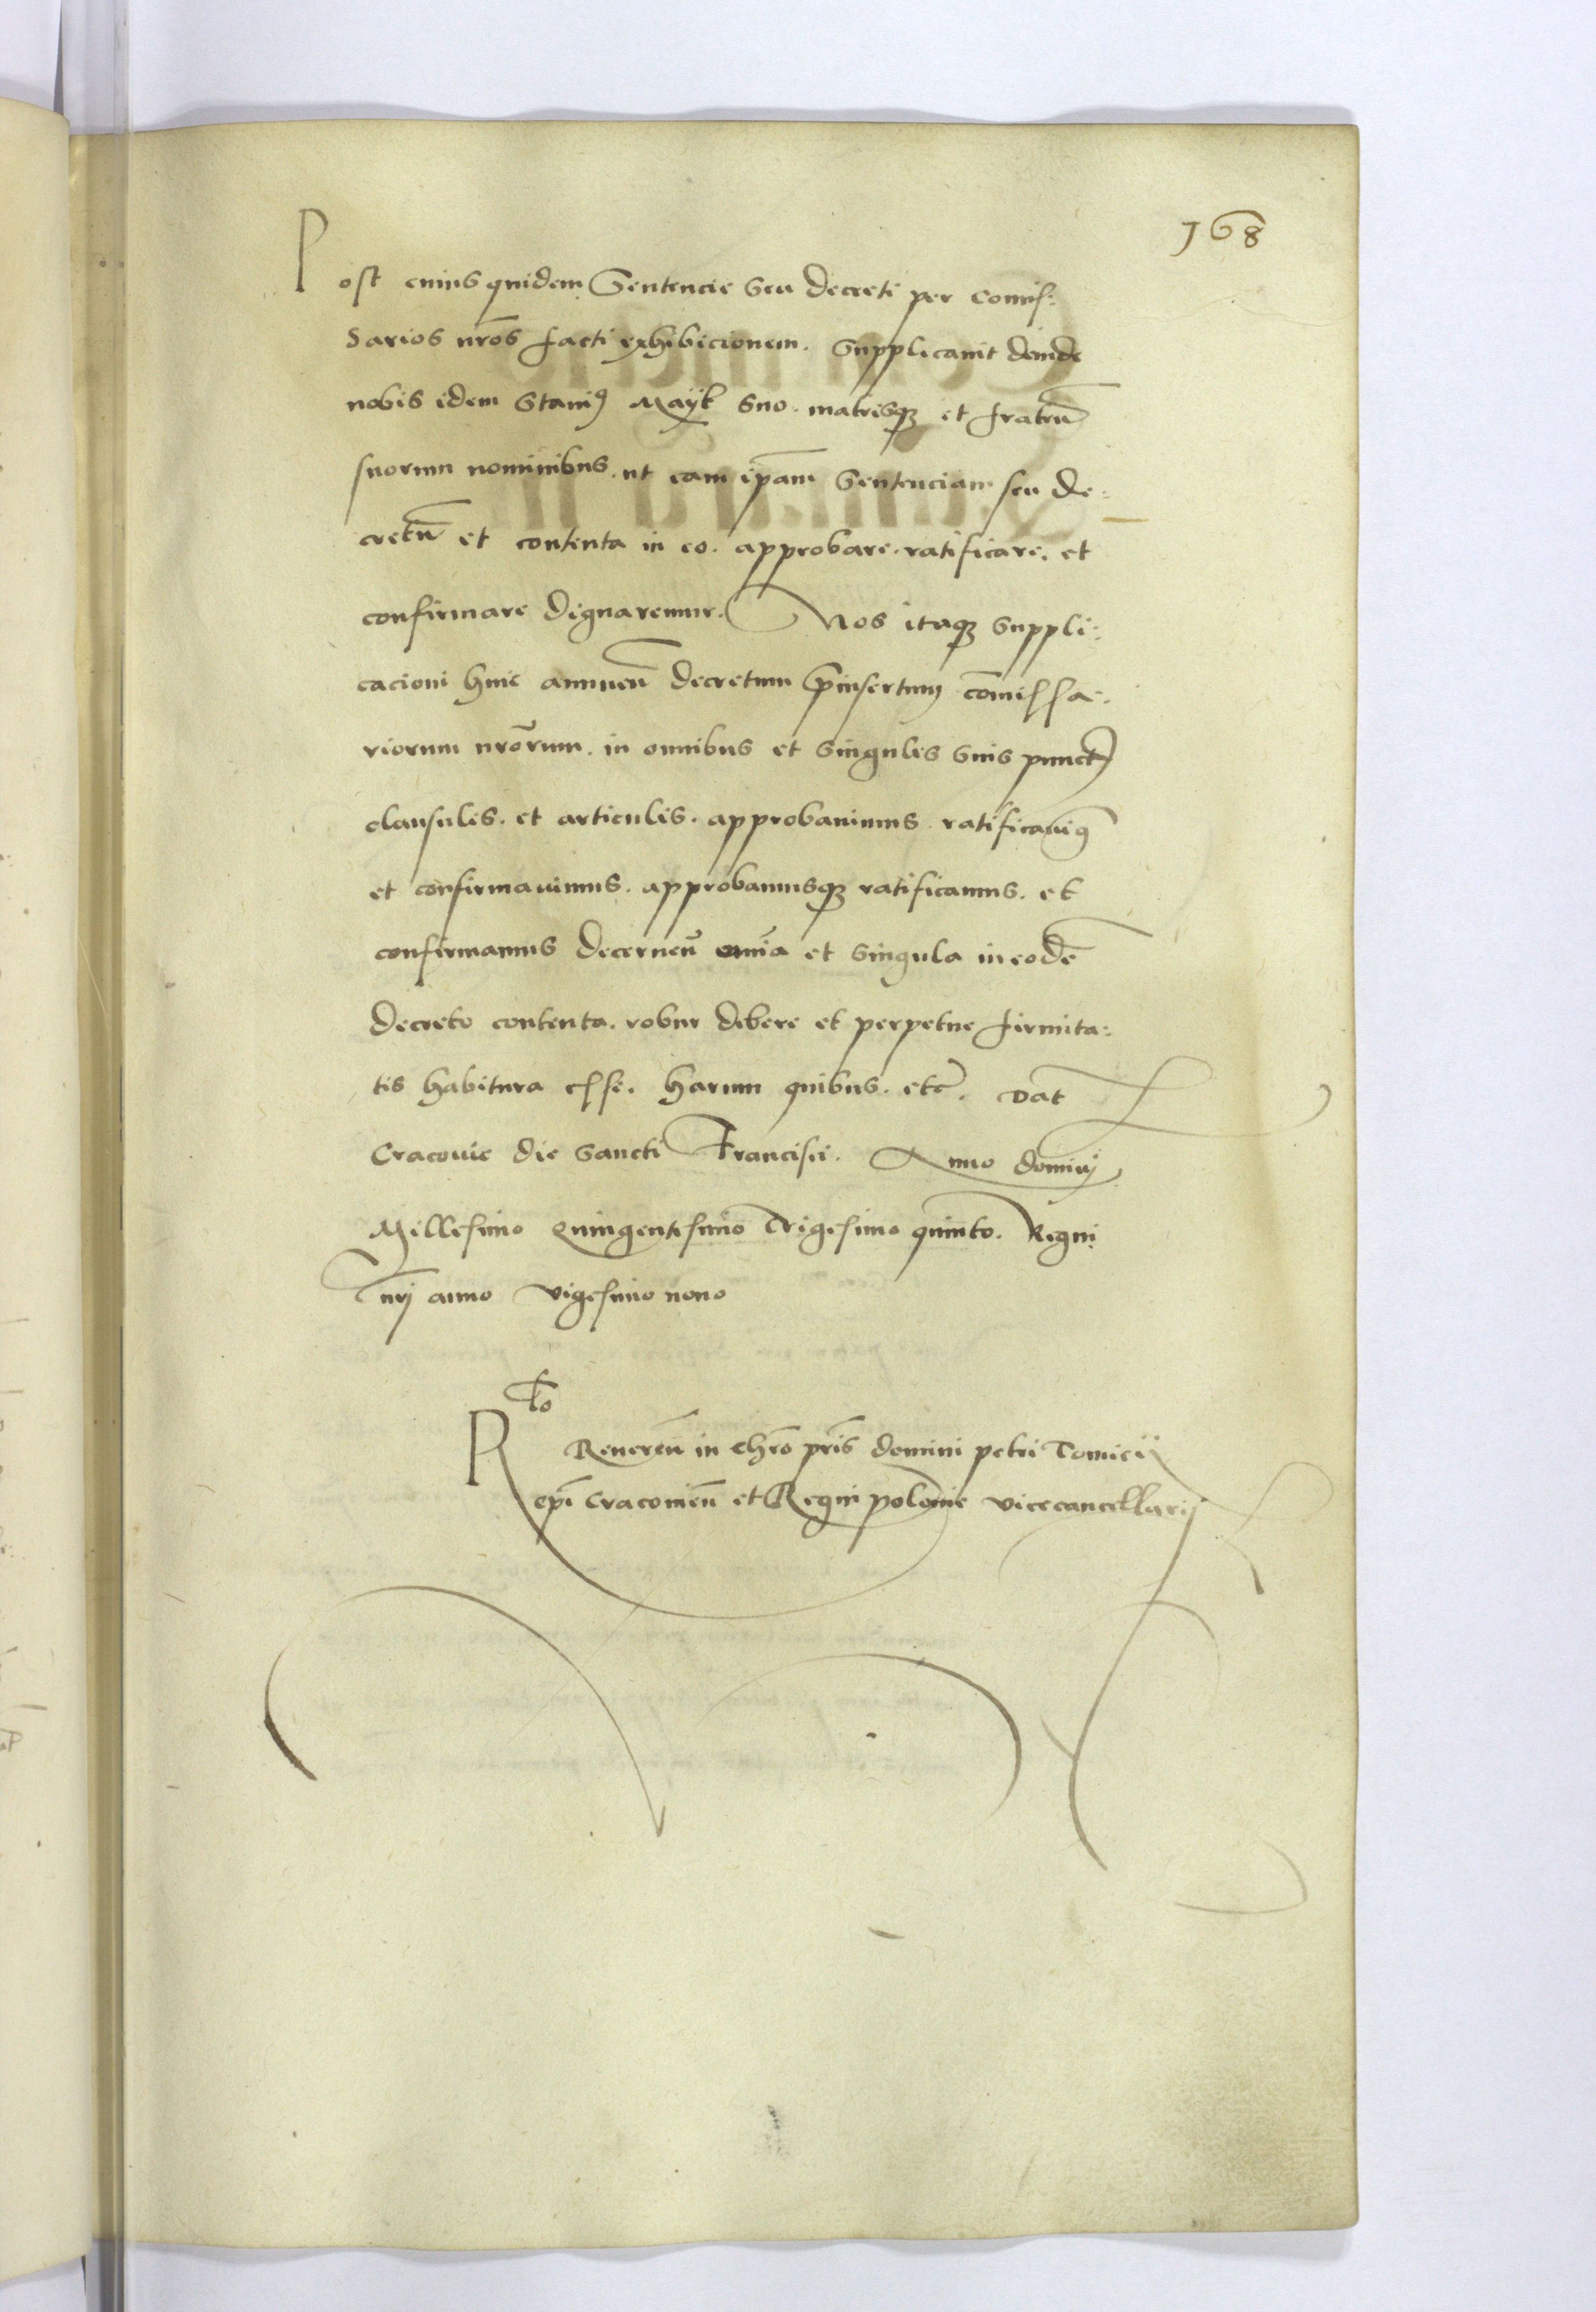 168
Post cuius quidem Sentencie seu decreti per comis:
sarios nr̃os facti exhibicionem. Supplicavit deinde
nobis idem Stani⁹ Mayk suo. matrisqꝫ et fratrũ
suorum nominibus. ut eam ip̃am Sentenciam seu de:
cretũ et contenta in eo. approbare. ratificare. et
confirmare dignaremur. Nos itaqꝫ suppli:
cacioni huic annueñ decretum p̃insertum com̃issa:
riorum nr̃orum. in omnibus et singulis suis punctꝭ
clausulis. et articulis. approbavimus. ratificavimꝰ
et confirmavimus. approbamusqꝫ ratificamus. et
confirmamus decerneñ om̃ia et singula in eodẽ
decreto contenta. robur debere et perpetue firmita:
tis habitura esse. harum quibus. etc̃. Dat̃
Cracovie die sancti Francisci. Anno dominj
Millesimo quingentesimo Trigesimo quinto. Regni
nrĩ anno vigesimo nono
Rl̃o
Revereñ in chr̃o pr̃is domini petri Tomicij
ep̃i Cracovieñ et Regni polonie vicecancellarij